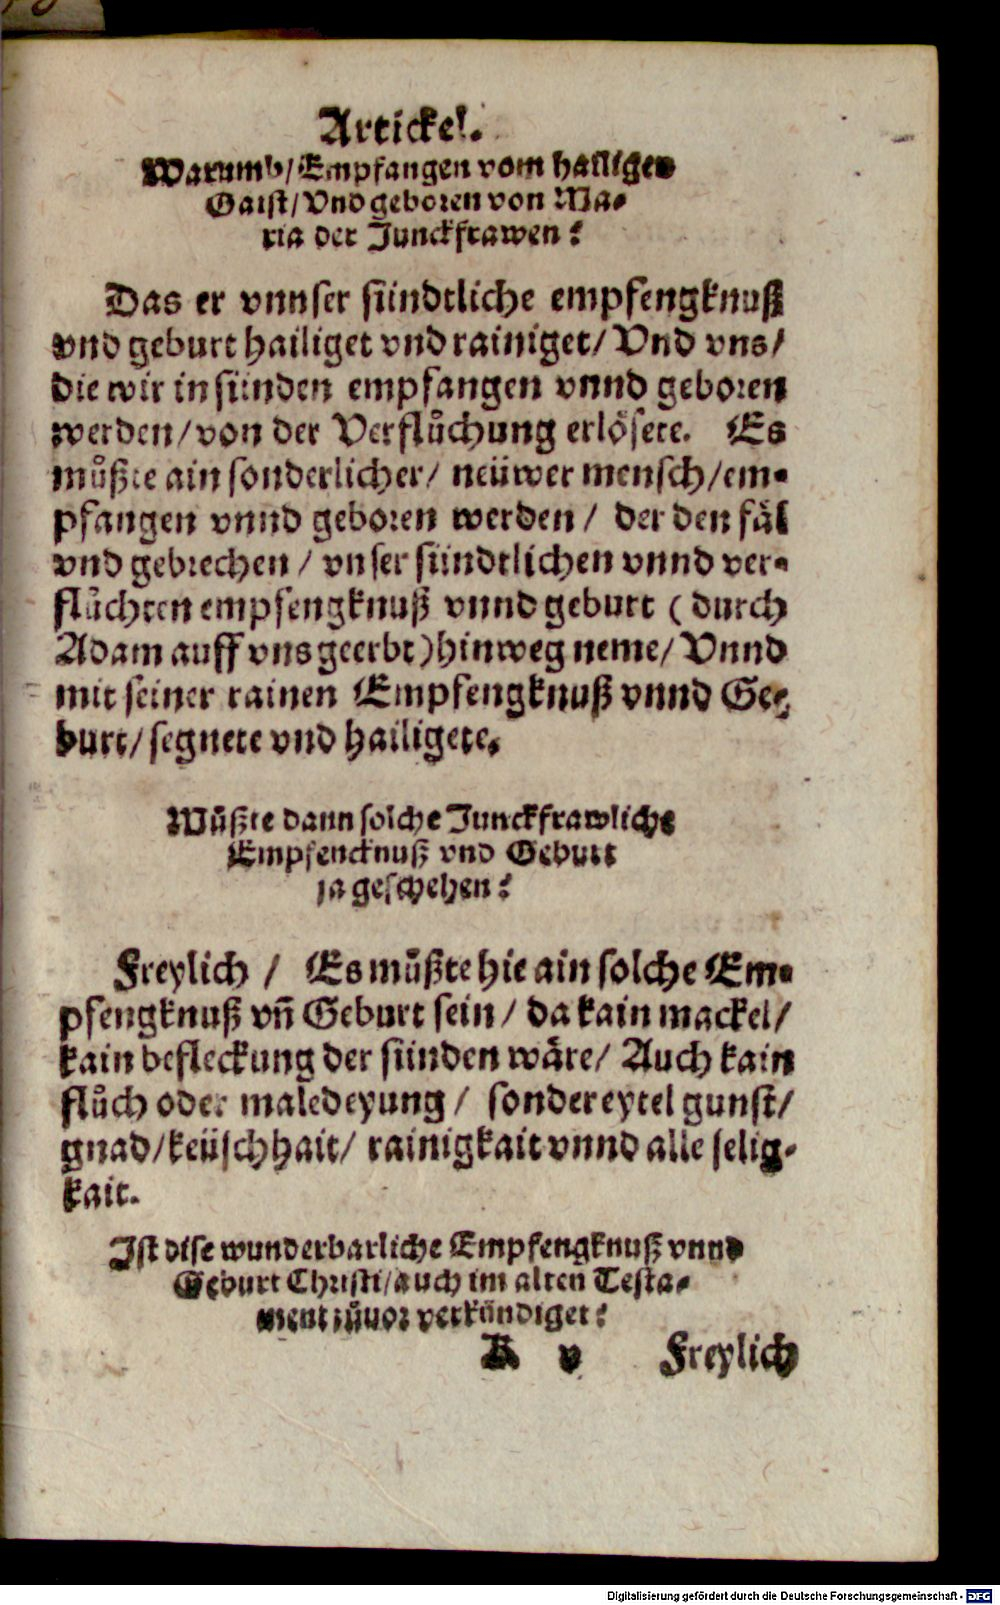 Artickel.
Warumb/ Empfangen vom hailigen
Gaist/ Vnd geboren von Ma-
ria der Junckfrawen?
Das er vnnser sündtliche empfengknuß
vnd geburt hailiget vnd rainiget/ Vnd vns/
die wir in sünden empfangen vnnd geboren
werden/ von der Verflůchung erlösete. Es
můßte ain sonderlicher/ neüwer mensch/ em-
pfangen vnnd geboren werden/ der den fäl
vnd gebrechen/ vnser sündtlichen vnnd ver-
flůchten empfengknuß vnnd geburt (durch
Adam auff vns geerbt) hinweg neme/ Vnnd
mit seiner rainen Empfengknuß vnnd Ge-
burt/ segnete vnd hailigete.
Můßte dann solche Junckfrawliche
Empfencknuß vnd Geburt
ja geschehen?
Freylich/ Es můßte hie ain solche Em-
pfengknuß vñ Geburt sein/ da kain mackel/
kain befleckung der sünden wäre/ Auch kain
flůch oder maledeyung/ sonder eytel gunst/
gnad/ keüschhait/ rainigkait vnnd alle selig-
kait.
Ist dise wunderbarliche Empfengknuß vnnd
Geburt Christi/ auch im alten Testa-
ment zůuor verkündiget?
K v Freylich
Digitalisierung gefördert durch die Deutsche Forschungsgemeinschaft - DFG